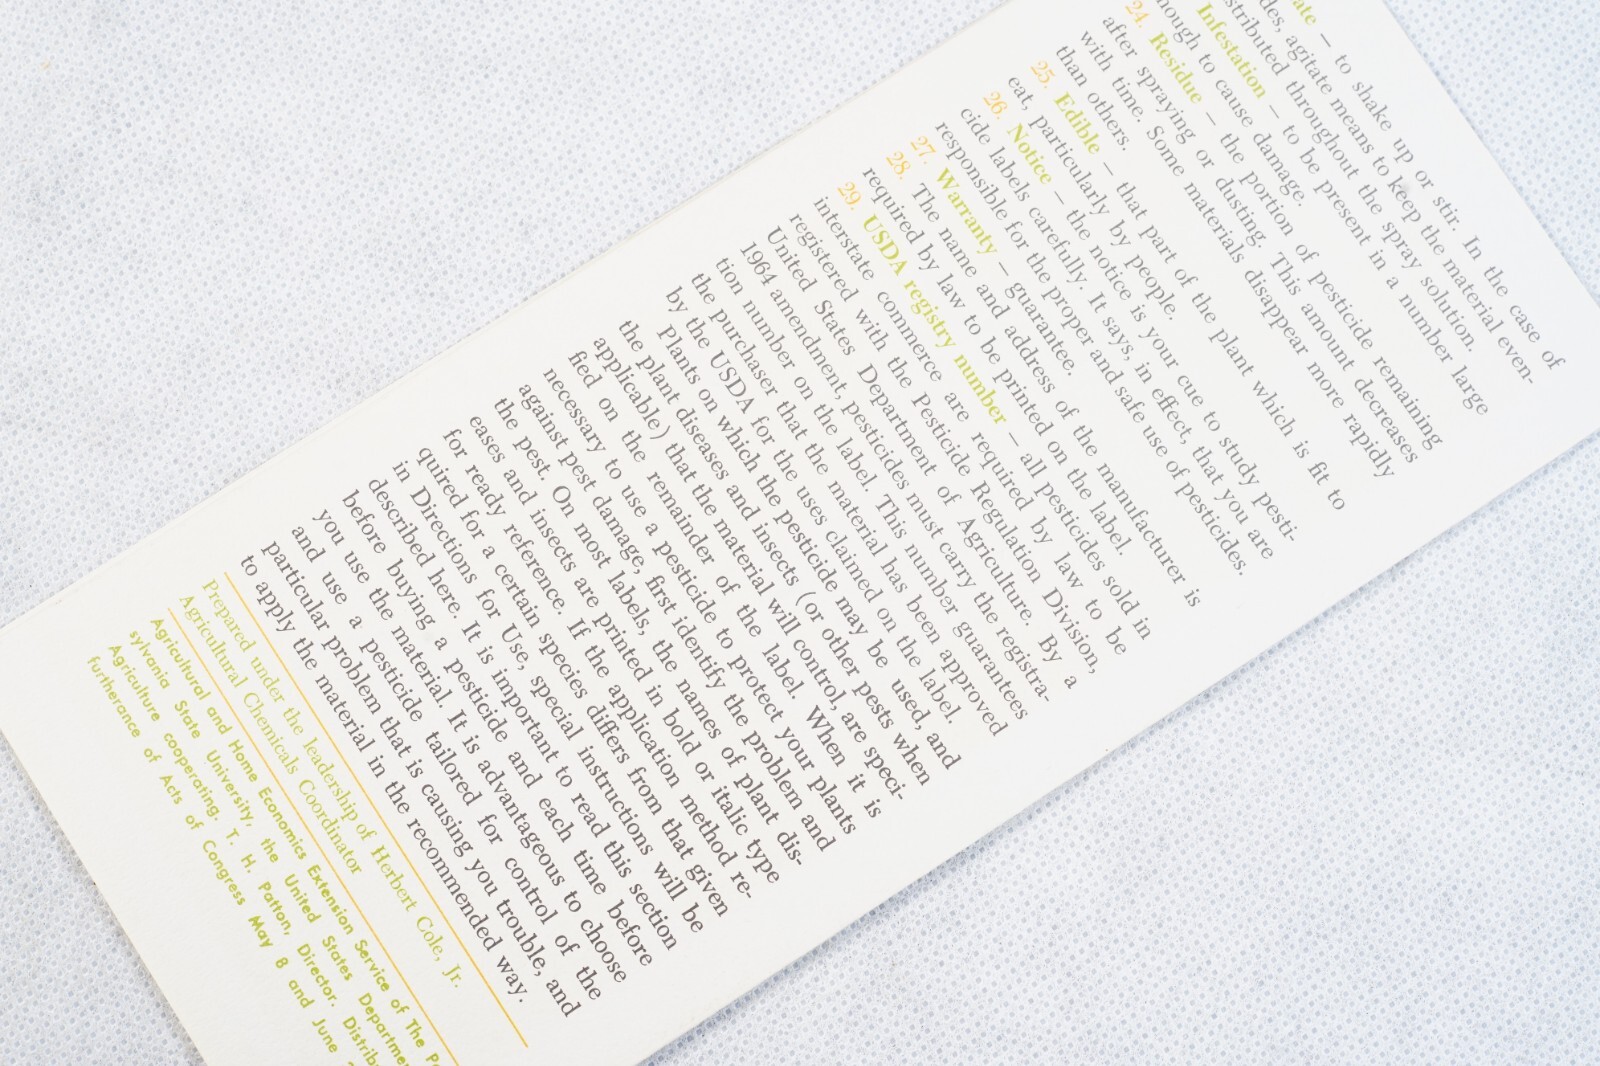 ate — to shake up or stir. In the case of
des, agitate means to keep the material even-
stributed throughout the spray solution.
Infestation — to be present in a number large
nough to cause damage.
24. Residue — the portion of pesticide remaining
after spraying or dusting. This amount decreases
with time. Some materials disappear more rapidly
than others.
25. Edible — that part of the plant which is fit to
eat, particularly by people.
26. Notice — the notice is your cue to study pesti-
cide labels carefully. It says, in effect, that you are
responsible for the proper and safe use of pesticides.
27. Warranty — guarantee.
28. The name and address of the manufacturer is
required by law to be printed on the label.
29. USDA registry number — all pesticides sold in
interstate commerce are required by law to be
registered with the Pesticide Regulation Division,
United States Department of Agriculture. By a
1964 amendment, pesticides must carry the registra-
tion number on the label. This number guarantees
the purchaser that the material has been approved
by the USDA for the uses claimed on the label.
Plants on which the pesticide may be used, and
the plant diseases and insects (or other pests when
applicable) that the material will control, are speci-
fied on the remainder of the label. When it is
necessary to use a pesticide to protect your plants
against pest damage, first identify the problem and
the pest. On most labels, the names of plant dis-
eases and insects are printed in bold or italic type
for ready reference. If the application method re-
quired for a certain species differs from that given
in Directions for Use, special instructions will be
described here. It is important to read this section
before buying a pesticide and each time before
you use the material. It is advantageous to choose
and use a pesticide tailored for control of the
particular problem that is causing you trouble, and
to apply the material in the recommended way.
Prepared under the leadership of Herbert Cole, Jr.
Agricultural Chemicals Coordinator
Agricultural and Home Economics Extension Service of The
sylvania State University, the United States
Agriculture cooperating. T. H. Patton, Director.
furtherance of Acts of Congress May 8 and June